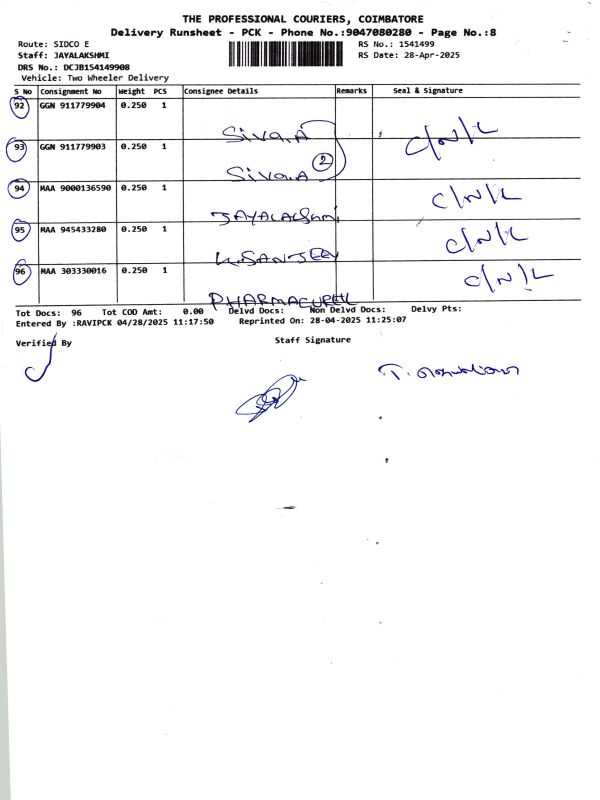 THE PROFESSIONAL COURIERS, COIMBATORE
Delivery Runsheet - PCK - Phone No.:9047080280 - Page No.:8
Route: SIDCO E RS No.: 1541499
Staff: JAYALAKSHMI RS Date: 28-Apr-2025
DRS No.: DCJB154149908
Vehicle: Two Wheeler Delivery
S No Consignment No Weight PCS Consignee Details Remarks Seal & Signature
92 GGN 911779904 0.250 1
Siva.A C/N/L
93 GGN 911779903 0.250 1
Siva.A 2
94 MAA 9000136590 0.250 1 C/N/L
JAYALAKSHMI
95 MAA 945433280 0.250 1 C/N/L
K.SANJEEV
96 MAA 303330016 0.250 1 C/N/L
Tot Docs: 96 Tot COD Amt: 0.00 Delvd Docs: Non Delvd Docs: Delvy Pts:
Entered By :RAVIPCK 04/28/2025 11:17:50 Reprinted On: 28-04-2025 11:25:07
Verified By Staff Signature